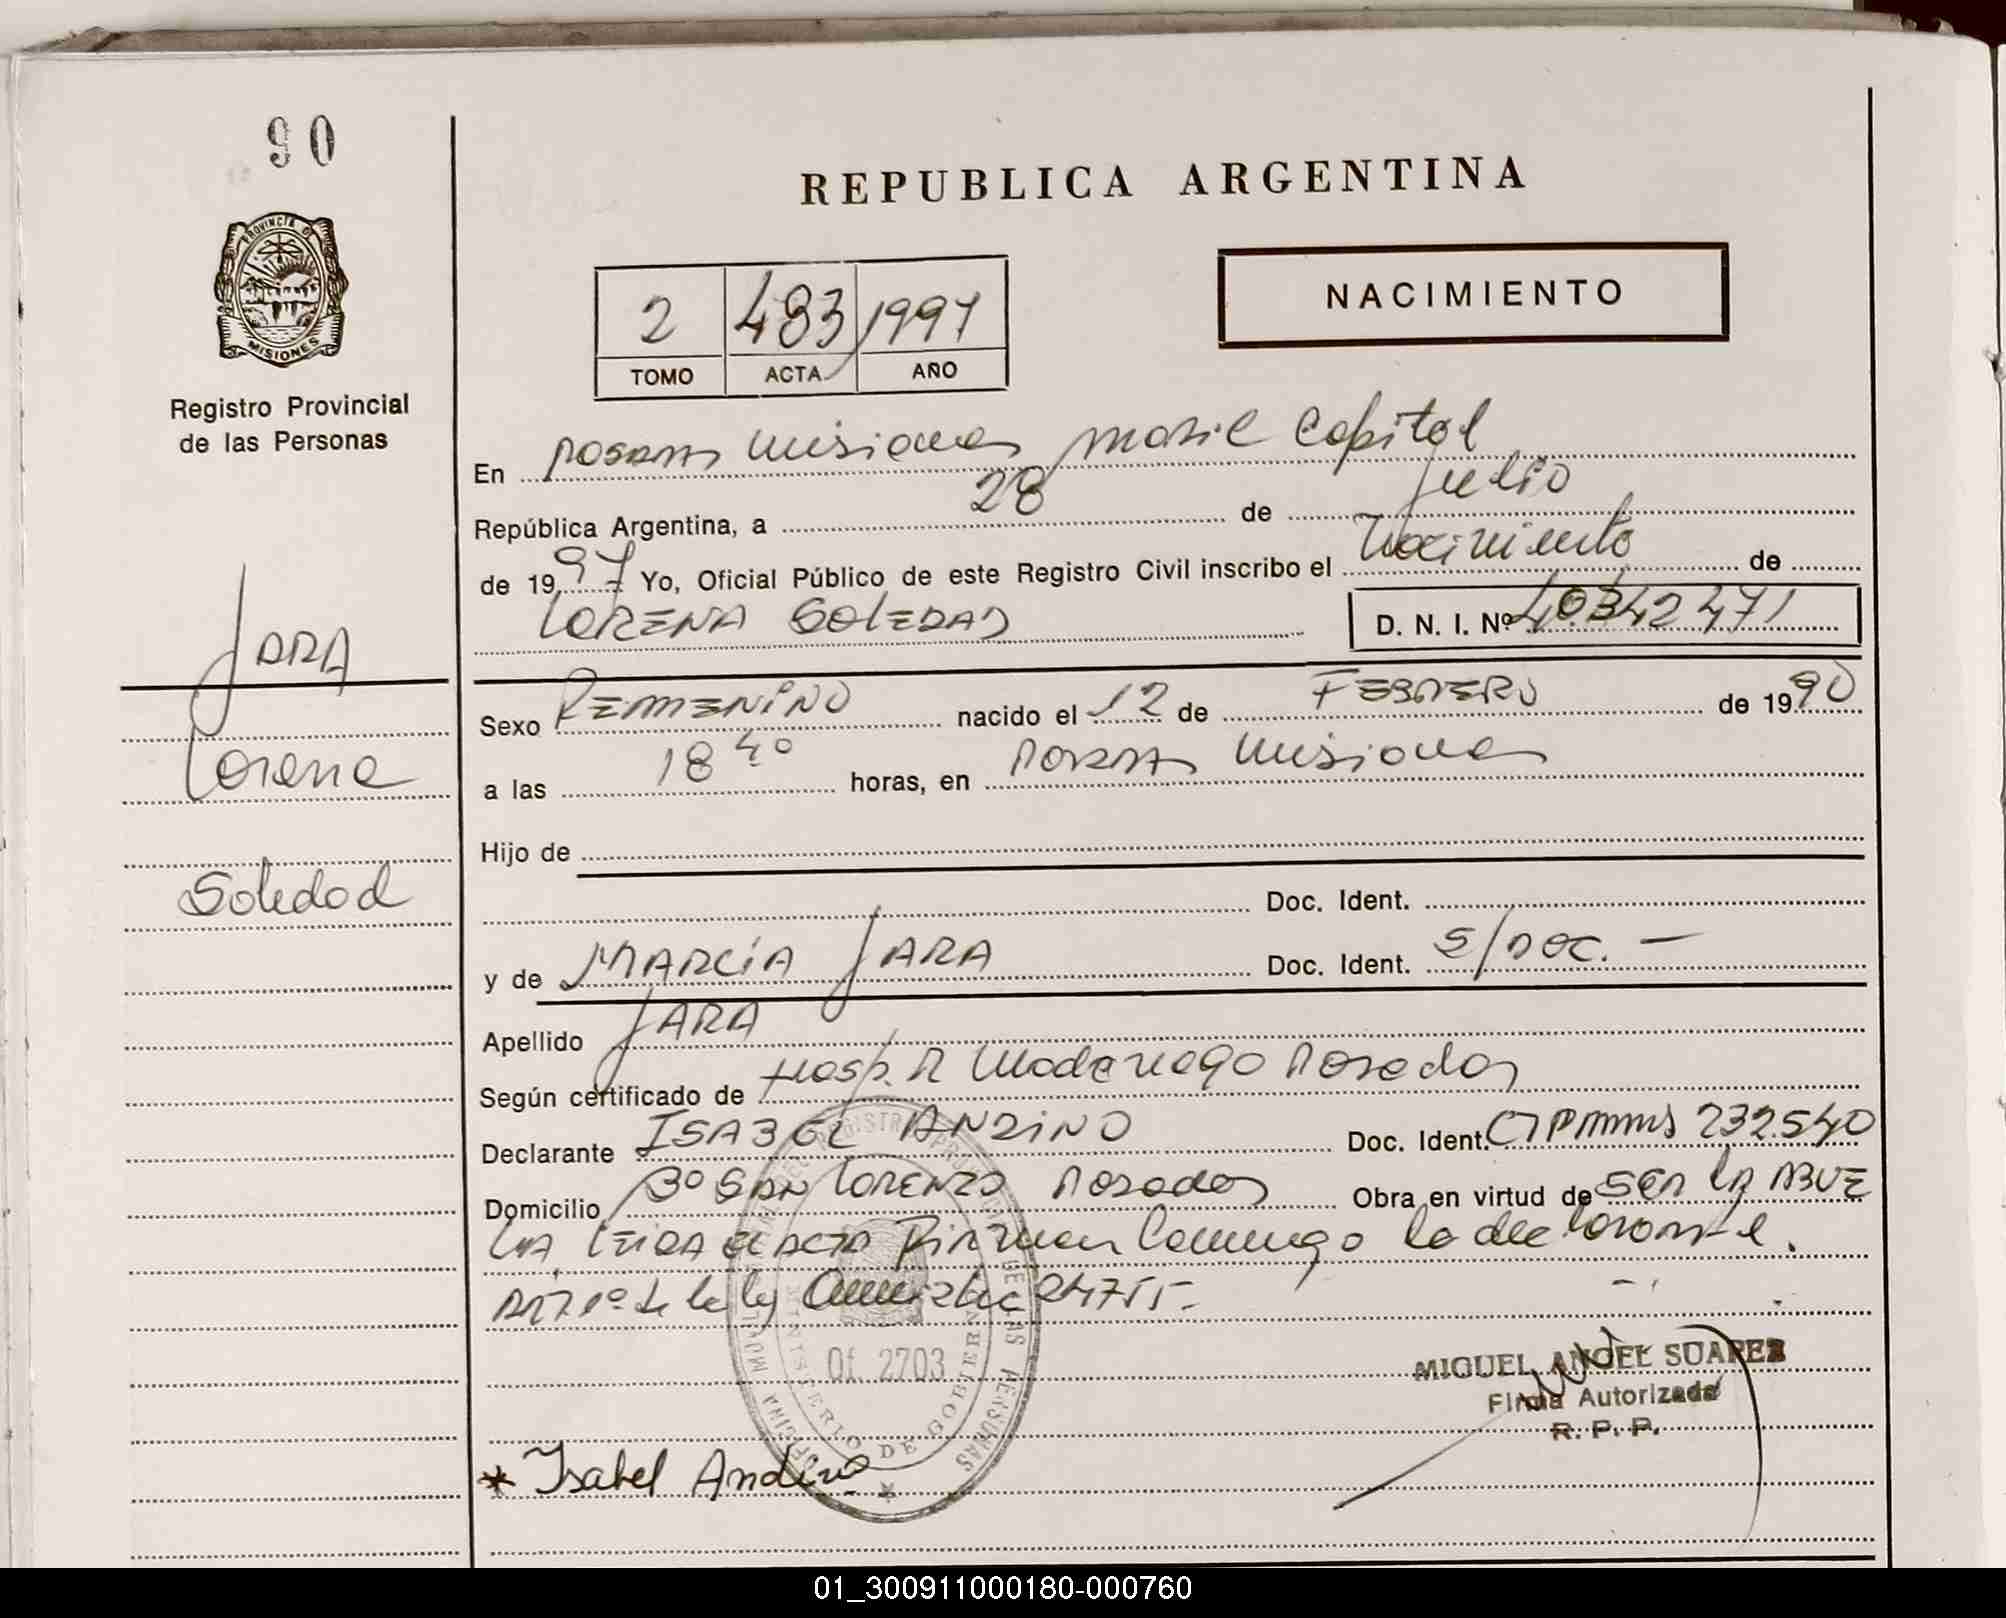 90
REPUBLICA ARGENTINA
PROVINCIA DE
MISIONES
Registro Provincial
de las Personas
2 483 1997
TOMO ACTA AÑO
NACIMIENTO
En Posadas Misiones Capital
República Argentina, a 28 de Julio
de 1997 Yo, Oficial Público de este Registro Civil inscribo el Nacimiento de
LORENA SOLEDAD
D. N. I. Nº 40.342471
JARA
Lorena
Soledad
Sexo FEMENINO nacido el 12 de FEBRERO de 1990
a las 18 40 horas, en Posadas Misiones
Hijo de
Doc. Ident.
y de MARCIA JARA Doc. Ident. S/DOC. —
Apellido JARA
Según certificado de Hosp. R Madariaga Posadas
Declarante ISABEL ANDINO Doc. Ident. 232.540
Domicilio Bº SAN LORENZO Posadas Obra en virtud de SER LA ABUE
LA. LEIDA EL ACTA FIRMAN Conmigo la declarante.
de la ley 24755.-
OFICINA MOVIL REGISTRO PROVINCIAL DE LAS PERSONAS
MINISTERIO DE GOBIERNO
Of. 2703
MIGUEL ANGEL SUAREZ
Firma Autorizada
R. P. P.
* Isabel Andino
01_300911000180-000760